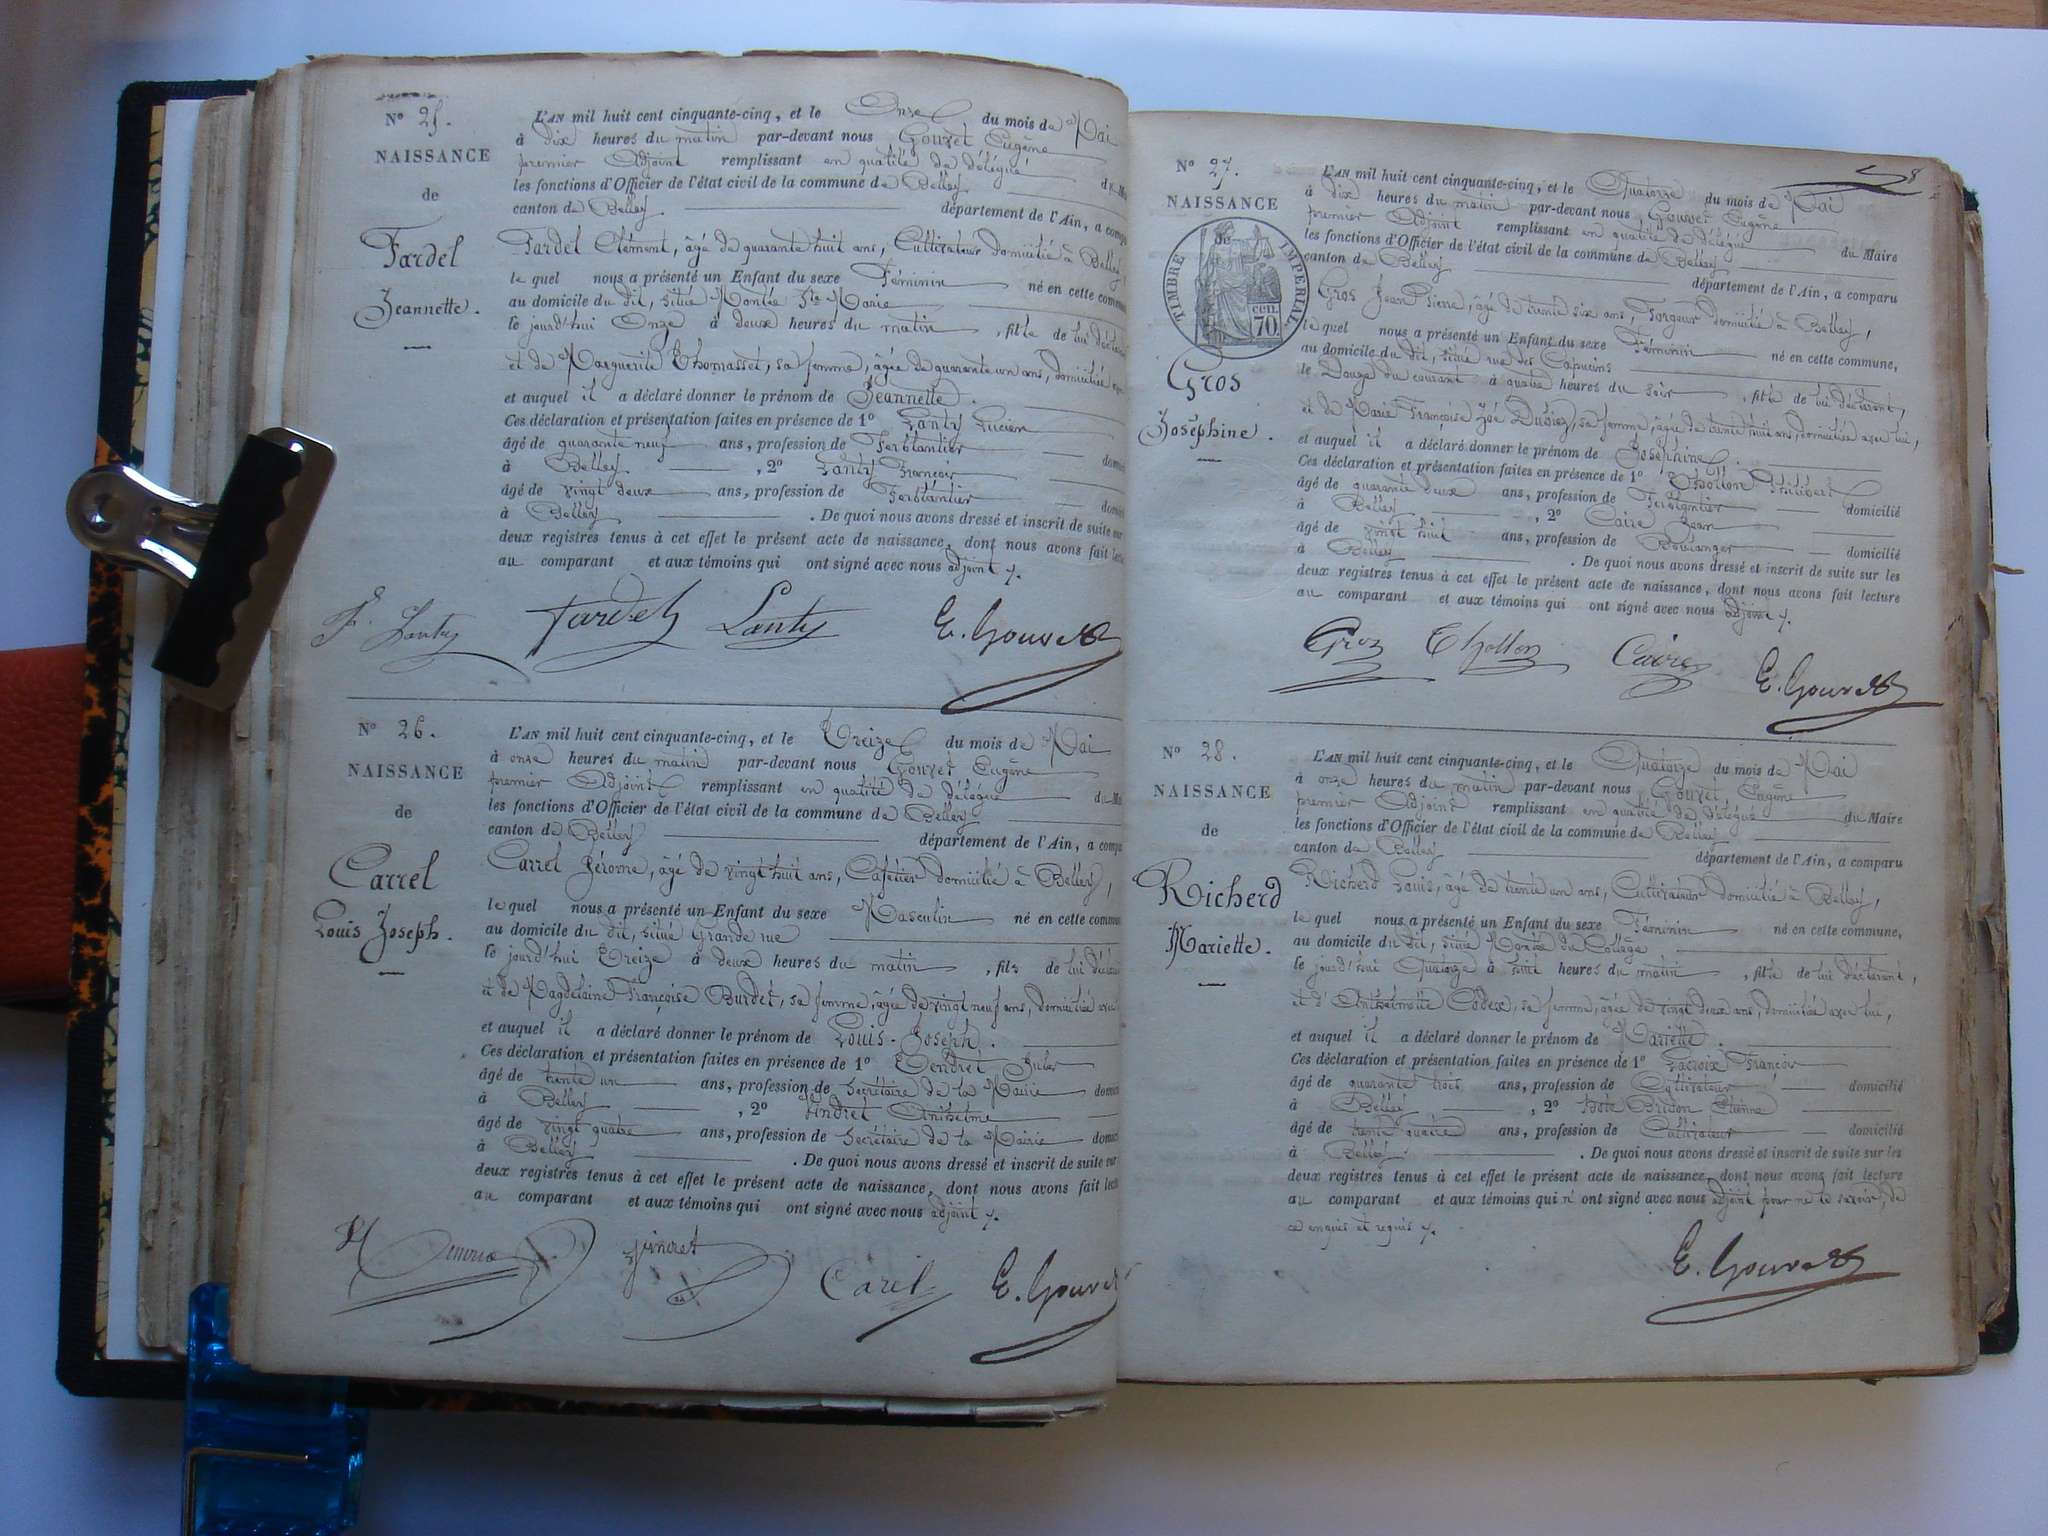 N° 25.
NAISSANCE
de
Fardel
Jeannette.
L'AN mil huit cent cinquante-cinq, et le Onze du mois de Mai
à dix heures du matin par-devant nous Gouvet Eugène
premier Adjoint remplissant en qualité de délégué du Ma
les fonctions d'Officier de l'état civil de la commune de Belley
canton de Belley département de l'Ain, a compa
Fardel Clément, âgé de quarante huit ans, Cultivateur domicilié à Belley,
le quel nous a présenté un Enfant du sexe Féminin né en cette commune
au domicile du dit, situé Montée Ste Marie
le jourd'hui Onze à deux heures du matin, fille de lui déclarant
et de Marguerite Thomasset, sa femme, âgée de quarante un ans, domiciliée
et auquel il a déclaré donner le prénom de Jeannette.
Ces déclaration et présentation faites en présence de 1° Lanty Lucien
âgé de quarante neuf ans, profession de Ferblantier domici
à Belley, 2° Lanty François
âgé de vingt deux ans, profession de Ferblantier domici
à Belley. De quoi nous avons dressé et inscrit de suite sur
deux registres tenus à cet effet le présent acte de naissance, dont nous avons fait lectu
au comparant et aux témoins qui ont signé avec nous adjoint
F. Lanty Fardel Lanty E. Gouvet
N° 26.
NAISSANCE
de
Carrel
Louis Joseph.
L'AN mil huit cent cinquante-cinq, et le Treize du mois de Mai
à onze heures du matin par-devant nous Gouvet Eugène
premier Adjoint remplissant en qualité de délégué du Ma
les fonctions d'Officier de l'état civil de la commune de Belley
canton de Belley département de l'Ain, a compa
Carrel Jérome, âgé de vingt huit ans, Cafetier domicilié à Belley,
le quel nous a présenté un Enfant du sexe Masculin né en cette commun
au domicile du dit, situé Grande rue
le jourd'hui Treize à deux heures du matin, fils de lui déclarant
et de Magdelaine Françoise Burdet, sa femme, âgée de vingt neuf ans, domiciliée avec
et auquel il a déclaré donner le prénom de Louis-Joseph.
Ces déclaration et présentation faites en présence de 1° Tendret Jules
âgé de trente un ans, profession de Secrétaire de la Mairie domici
à Belley, 2° Andret Anthelme
âgé de vingt quatre ans, profession de Secrétaire de la Mairie domici
à Belley. De quoi nous avons dressé et inscrit de suite sur
deux registres tenus à cet effet le présent acte de naissance, dont nous avons fait lectu
au comparant et aux témoins qui ont signé avec nous adjoint
Carel E. Gouvet
N° 27.
NAISSANCE
de
TIMBRE IMPERIAL
70 cen.
Gros
Joséphine.
L'AN mil huit cent cinquante-cinq, et le Quatorze du mois de Mai
à dix heures du matin par-devant nous Gouvet Eugène
premier Adjoint remplissant en qualité de délégué du Maire
les fonctions d'Officier de l'état civil de la commune de Belley
canton de Belley département de l'Ain, a comparu
Gros Jean Pierre, âgé de trente six ans, Forgeur domicilié à Belley,
le quel nous a présenté un Enfant du sexe Féminin né en cette commune,
au domicile du dit, situé rue des Capucins
le Douze du courant à quatre heures du soir, fille de lui déclarant,
et de Marie Françoise Zoé Dubiez, sa femme, âgée de trente huit ans, domiciliée avec lui,
et auquel il a déclaré donner le prénom de Joséphine.
Ces déclaration et présentation faites en présence de 1° Thollon Philibert
âgé de quarante deux ans, profession de Ferblantier domicilié
à Belley, 2° Caire Jean
âgé de vingt huit ans, profession de Boulanger domicilié
à Belley. De quoi nous avons dressé et inscrit de suite sur les
deux registres tenus à cet effet le présent acte de naissance, dont nous avons fait lecture
au comparant et aux témoins qui ont signé avec nous adjoint
Groz Thollon Caire E. Gouvet
N° 28.
NAISSANCE
de
Richerd
Mariette.
L'AN mil huit cent cinquante-cinq, et le Quatorze du mois de Mai
à onze heures du matin par-devant nous Gouvet Eugène
premier Adjoint remplissant en qualité de délégué du Maire
les fonctions d'Officier de l'état civil de la commune de Belley
canton de Belley département de l'Ain, a comparu
Richerd Louis, âgé de trente un ans, Cultivateur domicilié à Belley,
le quel nous a présenté un Enfant du sexe Féminin né en cette commune,
au domicile du dit, situé Montée du Collège
le jourd'hui Quatorze à huit heures du matin, fille de lui déclarant,
et d'Anthelmette Codex, sa femme, âgée de vingt deux ans, domiciliée avec lui,
et auquel il a déclaré donner le prénom de Mariette.
Ces déclaration et présentation faites en présence de 1° Lacroix François
âgé de quarante trois ans, profession de Cultivateur domicilié
à Belley, 2° Bridon Etienne
âgé de trente quatre ans, profession de Cultivateur domicilié
à Belley. De quoi nous avons dressé et inscrit de suite sur les
deux registres tenus à cet effet le présent acte de naissance, dont nous avons fait lecture
au comparant et aux témoins qui n'ont signé avec nous adjoint pour ne le savoir, de
ce enquis et requis
E. Gouvet